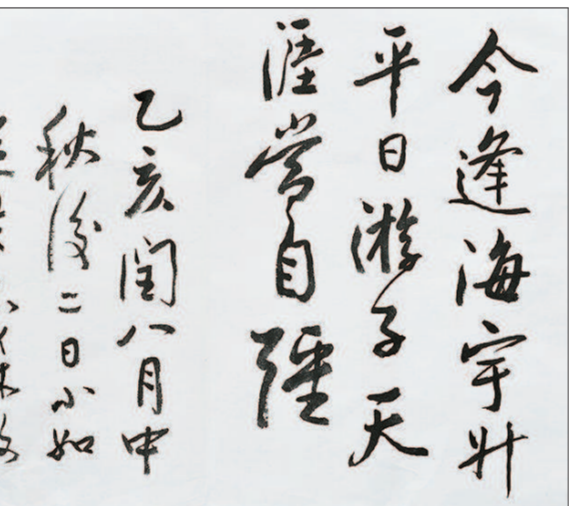 今逢海宇升
平日游子天
涯當自彊
乙亥閏八月中
秋後二日小如